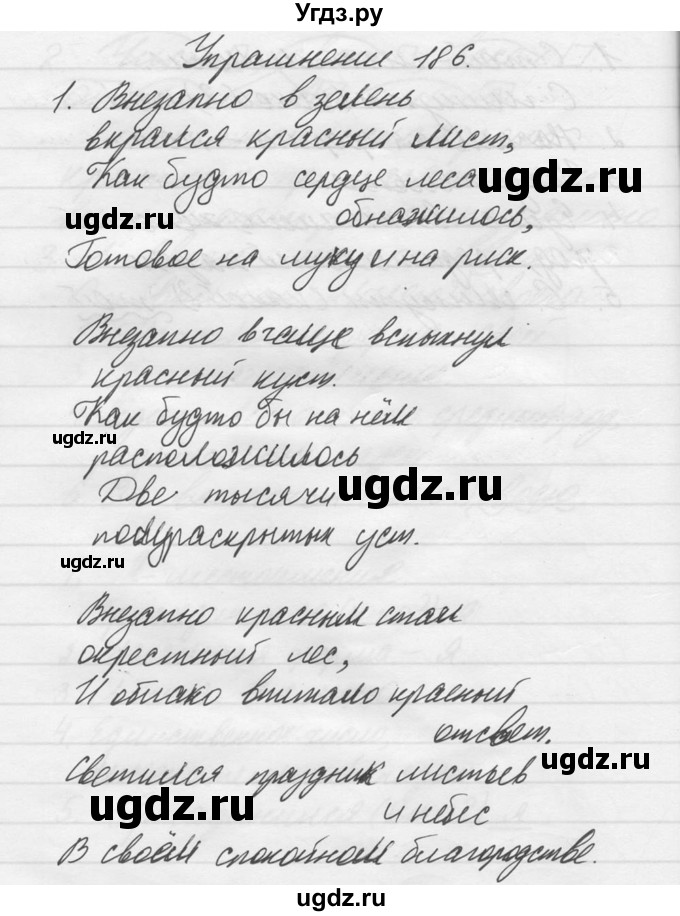 Угдз.ру
Упражнение 186.
1. Внезапно в зелень
вкрался красный лист,
Как будто сердце леса
ugdz.ru
ugdz.ru
обнажилось,
Готовое на муку и на риск.
Внезапно в чаще вспыхнул
красный куст.
Как будто бы на нём
ugdz.ru
расположилось
Две тысячи
ugdz.ru
полураскрытых уст.
ugdz.ru
Внезапно красным стал
окрестный лес,
И облако впитало красный
отсвет.
ugdz.ru
Светился праздник листьев
ugdz.ru
и небес
В своём спокойном благородстве.
ugdz.ru